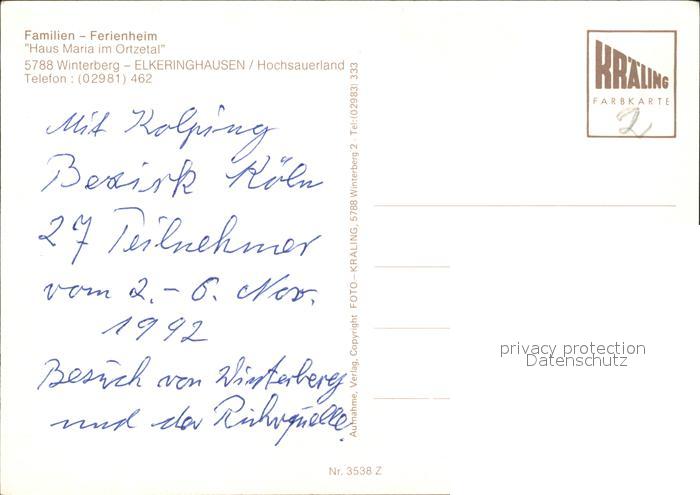 Familien – Ferienheim
"Haus Maria im Ortzetal"
5788 Winterberg – ELKERINGHAUSEN / Hochsauerland
Telefon : (02981) 462
Mit Kolping
Bezirk Köln
27 Teilnehmer
vom 2.– 6. Nov.
1992
Besuch von Winterberg
und der Ruhrquelle.
Aufnahme, Verlag, Copyright FOTO–KRÄLING, 5788 Winterberg 2 · Tel.:(02983) 333
KRÄLING
FARBKARTE
2
privacy protection
Datenschutz
Nr. 3538 Z